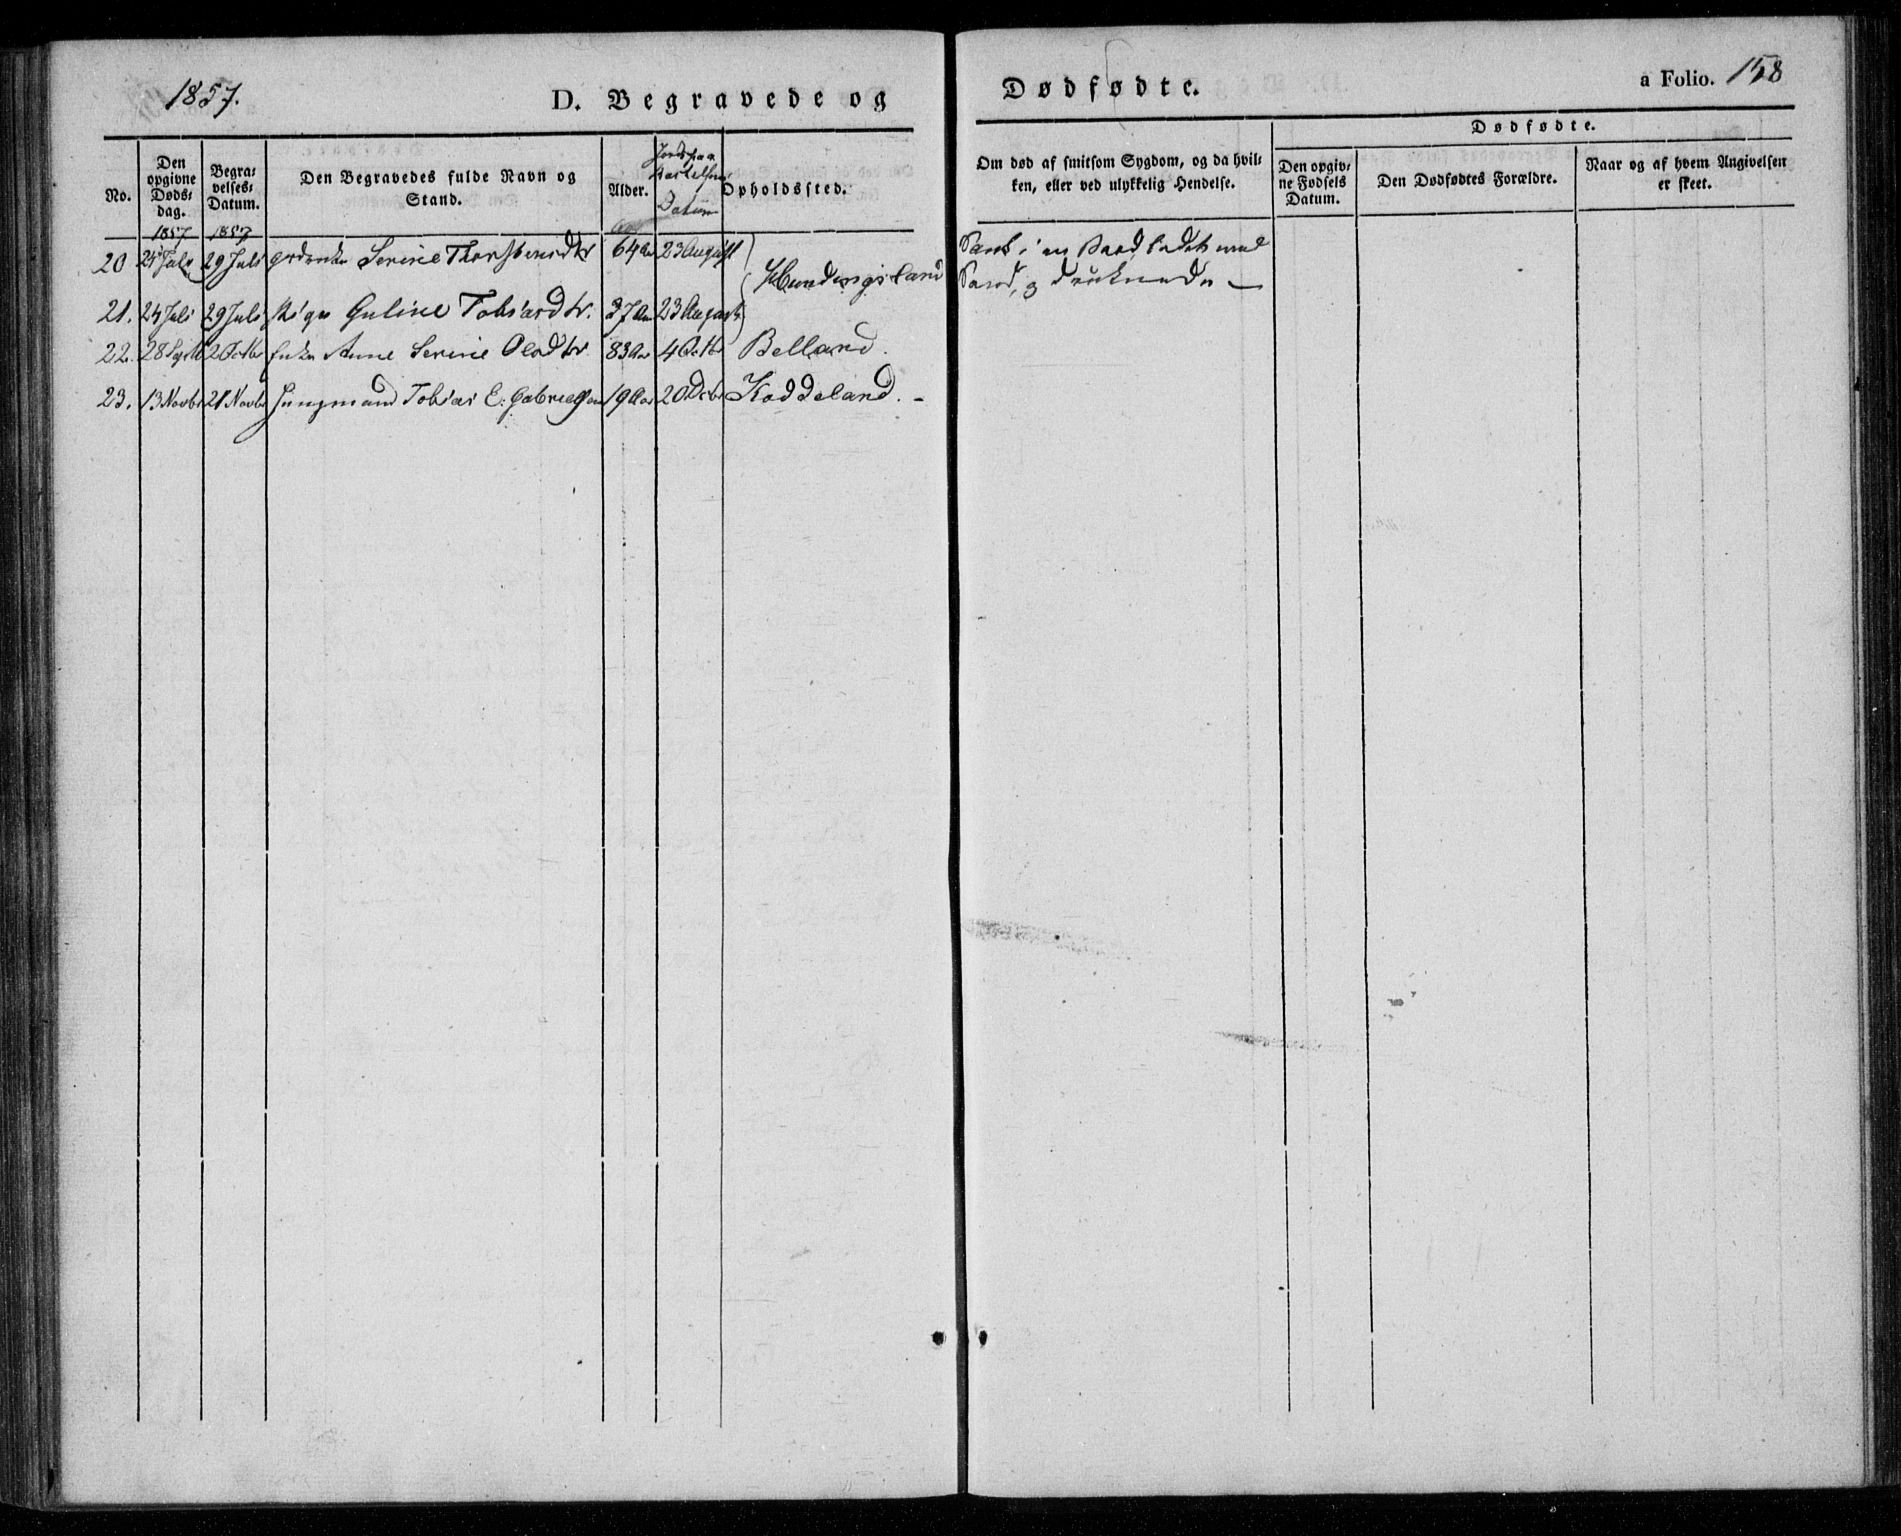 1857.
D. Begravede og
Dødfødte.
a Folio. 158
No.
Den opgivne Døds-dag.
Begra-velses-Datum.
Den Begravedes fulde Navn og Stand.
Alder.
Jordspaa-kastelsens Datum
Opholdssted.
Om død af smitsom Sygdom, og da hvil-
ken, eller ved ulykkelig Hendelse.
Dødfødte.
Den opgiv-ne Fødsels Datum.
Den Dødfødtes Forældre.
Naar og af hvem Angivelsen er skeet.
1857 1857
20 24 Juli 29 Juli Serine Thorstensdtr 64 Aar 23 August
Sank i en Baad ladet med
Hundingsland
Sand, og druknede —
21. 24 Juli 29 Juli Pige Guline Tobiasdtr. 37 Aar 23 August
22. 28 Septb 2 Octbr Enke Anne Serine Olsdtr 83 Aar 4 Octbr Belland.
23. 13 Novbr 21 Novbr Ungmand Tobias E. Gabrielsen 19 Aar 20 Dcbr Koddeland. -